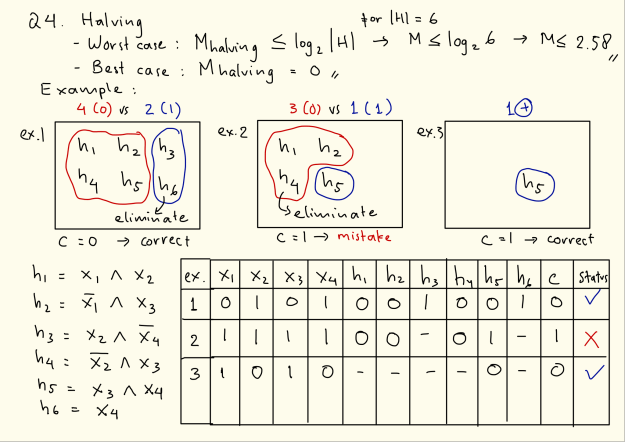 Q4. Halving
for |H| = 6
- Worst case : Mhalving ≤ log₂ |H| → M ≤ log₂ 6 → M ≤ 2.58 //
- Best case : Mhalving = 0 //
Example :
4 (0) vs 2 (1)
3 (0) vs 1 (1)
1 (+)
ex.1
h₁ h₂ h₃
h₄ h₅ h₆
eliminate
C = 0 → correct
ex.2
h₁ h₂
h₄ h₅
eliminate
C = 1 → mistake
ex.3
h₅
C = 1 → correct
h₁ = x₁ ∧ x₂
h₂ = x̅₁ ∧ x₃
h₃ = x₂ ∧ x̅₄
h₄ = x̅₂ ∧ x₃
h₅ = x₃ ∧ x₄
h₆ = x₄
ex. x₁ x₂ x₃ x₄ h₁ h₂ h₃ h₄ h₅ h₆ C status
1 0 1 0 1 0 0 1 0 0 1 0 ✓
2 1 1 1 1 0 0 - 0 1 - 1 X
3 1 0 1 0 - - - - 0 - 0 ✓